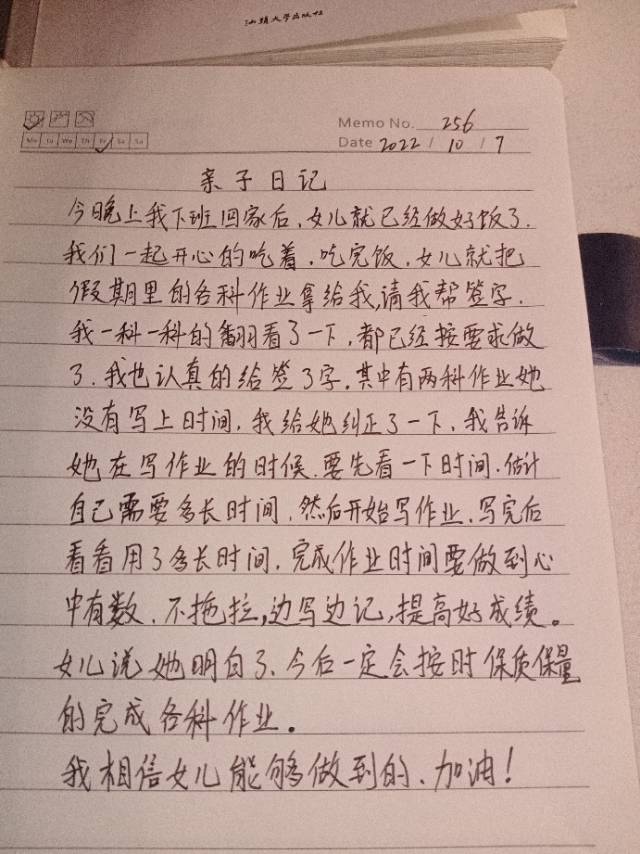 汕头大学出版社
Memo No. 256
Mo Tu We Th Fr Sa Su
Date 2022 / 10 / 7
亲子日记
今晚上我下班回家后,女儿就已经做好饭了.
我们一起开心的吃着,吃完饭,女儿就把
假期里的各科作业拿给我,请我帮签字.
我一科一科的翻看了一下,都已经按要求做
了.我也认真的给签了字.其中有两科作业她
没有写上时间,我给她纠正了一下,我告诉
她在写作业的时候.要先看一下时间.估计
自己需要多长时间,然后开始写作业.写完后
看看用了多长时间,完成作业时间要做到心
中有数.不拖拉,边写边记,提高好成绩。
女儿说她明白了、今后一定会按时保质保量
的完成各科作业。
我相信女儿能够做到的、加油!